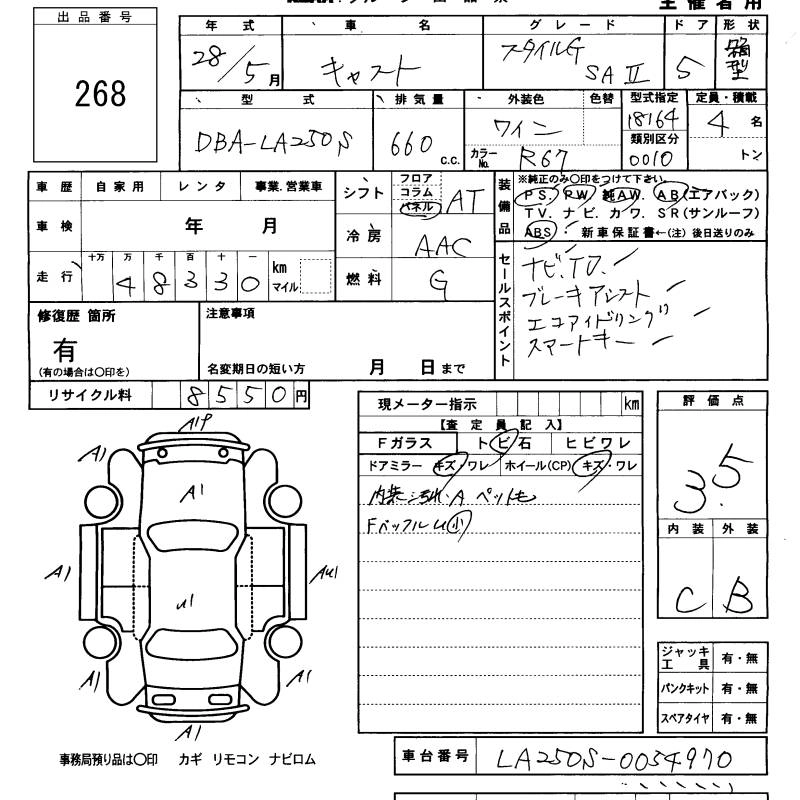 主催者用
出品番号
268
年式 車名 グレード ドア 形状
28/5月 キャスト スタイルG SAⅡ 5 箱型
型式 排気量 外装色 色替 型式指定 定員・積載
DBA-LA250S 660 c.c. ワイン 18164 4 名
カラーNo. R67 類別区分 0010 トン
車歴 自家用 レンタ 事業.営業車
シフト フロア コラム パネル AT
装備品 ※純正のみ〇印をつけて下さい。
PS. PW 純AW. AB(エアバック)
TV. ナビ. カワ. SR(サンルーフ)
ABS. 新車保証書←(注)後日送りのみ
車検 年 月
冷房 AAC
走行 十万 万 千 百 十 一
48330 km マイル
燃料 G
セールスポイント
ナビ.TV.
ブレーキアシスト
エコアイドリング
スマートキー
修復歴 箇所
有
(有の場合は〇印を)
注意事項
名変期日の短い方 月 日まで
リサイクル料 8550円
現メーター指示 km
【査定員記入】
Fガラス トビ石 ヒビワレ
ドアミラー キズ・ワレ ホイール(CP) キズ・ワレ
内装汚れ.A ペット毛
Fバックル U 小
評価点
3.5
内装 外装
C B
A1P
A1
A1
A1
A1
AU1
U1
A1
A1
A1
ジャッキ工具 有・無
パンクキット 有・無
スペアタイヤ 有・無
事務局預り品は〇印 カギ リモコン ナビロム
車台番号 LA250S-0054970